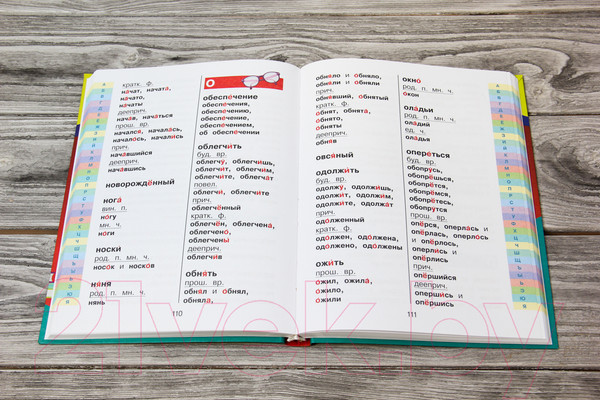 кратк. ф.
начат, начата,
начато,
начаты
дееприч.
начав, начаться
прош. вр.
начался, началась,
началось, начались
прич.
начавшийся
дееприч.
начавшись
новорождённый
нога
вин. п.
ногу
мн. ч.
ноги
носки
род. п. мн. ч.
носок и носков
няня
род. п. мн. ч.
нянь
О
обеспечение
обеспечения,
обеспечению,
обеспечение,
обеспечением,
об обеспечении
облегчить
буд. вр.
облегчу, облегчишь,
облегчит, облегчим,
облегчите, облегчат
повел.
облегчи, облегчите
прич.
облегчённый
кратк. ф.
облегчён, облегчена,
облегчено,
облегчены
дееприч.
облегчив
обнять
прош. вр.
обнял и обнял,
обняла,
110
обняло и обняло,
обняли и обняли
прич.
обнявший, обнятый
кратк. ф.
обнят, обнята,
обнято,
обняты
дееприч.
обняв
овсяный
одолжить
буд. вр.
одолжу, одолжишь,
одолжит, одолжим,
одолжите, одолжат
прич.
одолженный
кратк. ф.
одолжен, одолжена,
одолжено, одолжены
ожить
прош. вр.
ожил, ожила,
ожило,
ожили
окно
род. п. мн. ч.
окон
оладьи
род. п. мн. ч.
оладий
ед. ч.
оладья
опереться
буд. вр.
обопрусь,
обопрёшься,
обопрётся,
обопрёмся,
обопрётесь,
обопрутся
прош. вр.
опёрся, оперлась и
опёрлась, оперлось
и опёрлось,
оперлись и
опёрлись
прич.
опёршийся
дееприч.
опершись и
опёршись
111
21vek.by